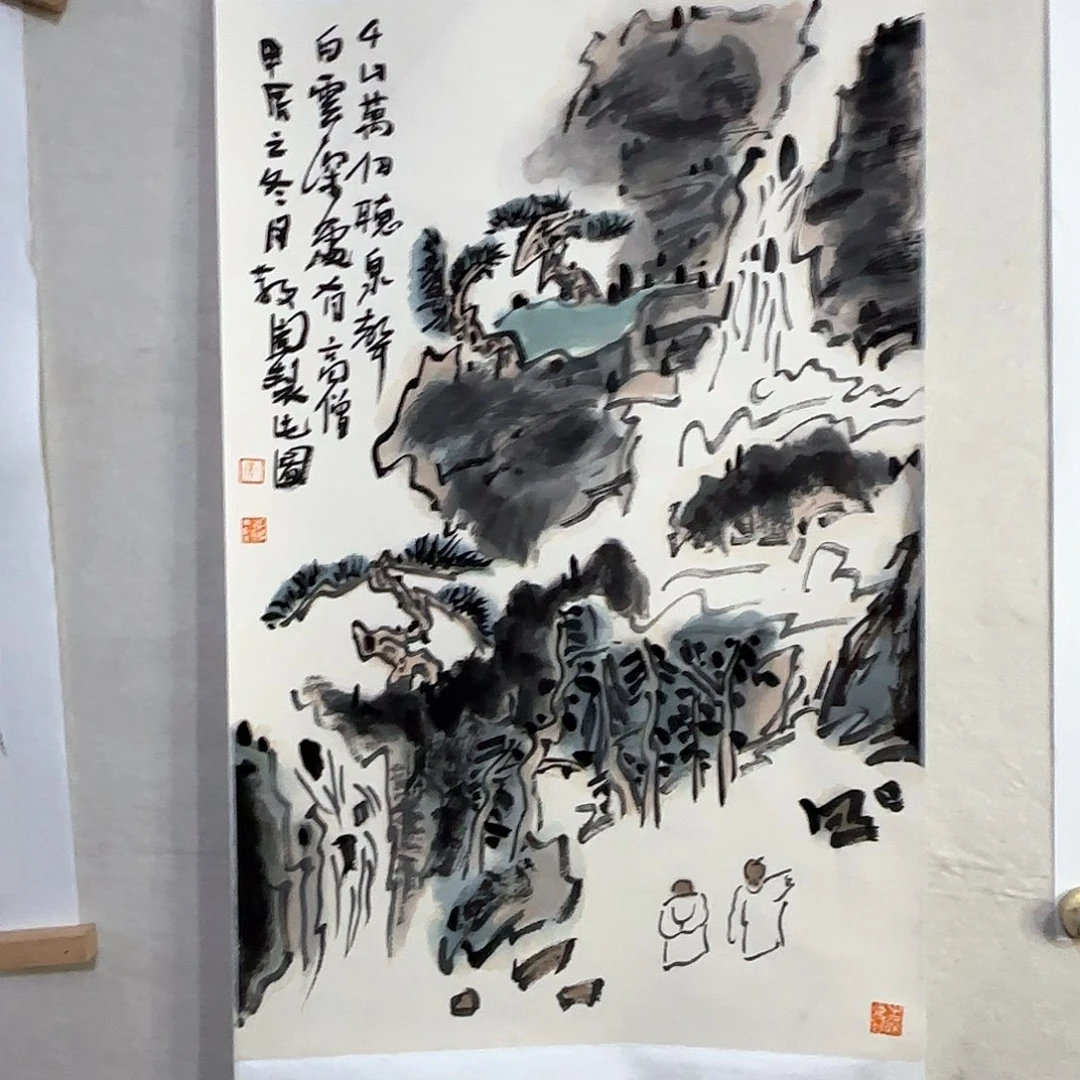 千山萬仞聽泉聲
白雲深處有高僧
甲辰之冬月園製此圖